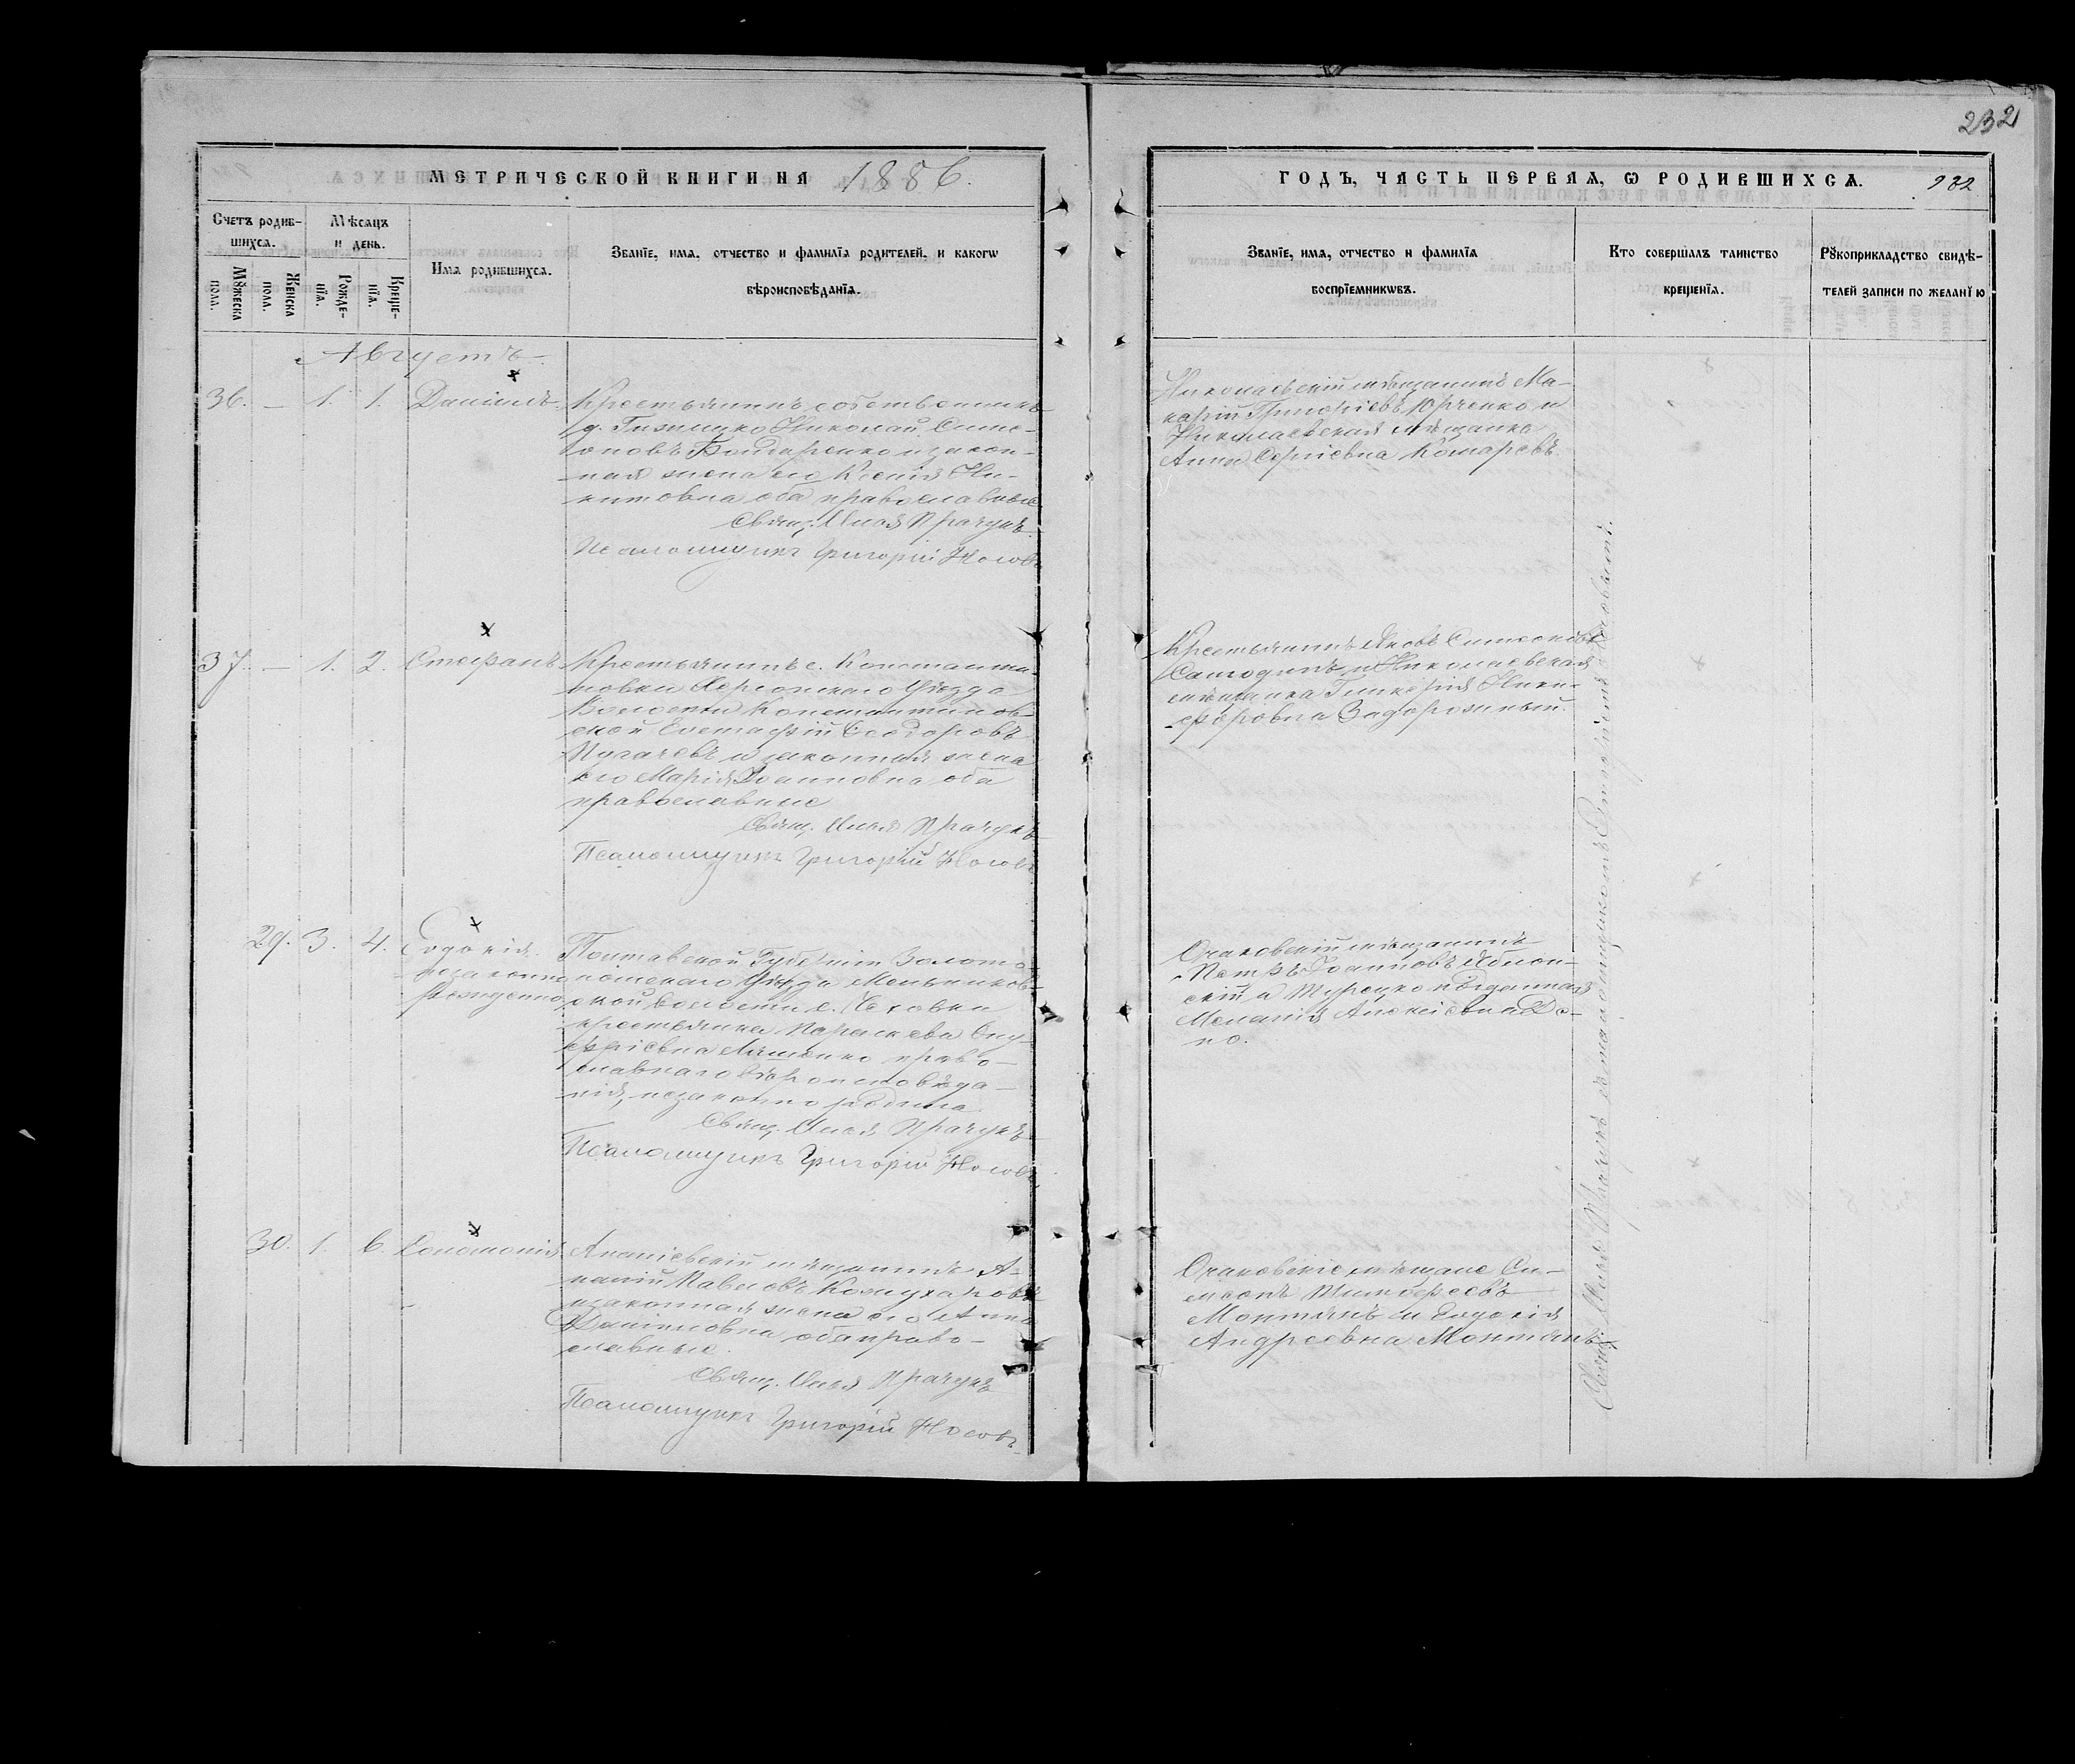 232
МЕТРИЧЕСКОЙ КНИГИ НА 1886.
ГОДЪ, ЧАСТЬ ПЕРВАЯ, Ѡ РОДИВШИХСѦ. 232
Счетъ родив-
шихсѧ.
Мꙋжеска пола.
Женска пола.
Мѣсяцъ
и день.
Рожде-
нїѧ.
Креще-
нїѧ.
Имѧ родившихсѧ.
Званїе, имѧ, отчество и фамилїѧ родителей, и какогѡ
вѣроисповѣданїѧ.
Званїе, имѧ, отчество и фамилїѧ
воспрїемникѡвъ.
Кто совершалъ таинство
крещенїѧ.
Рꙋкоприкладство свидѣ-
телей записи по желанїю
Августъ.
36. — 1. 1. Даніилъ.
Крестьянинъ собственникъ
Николай Симе-
оновъ Бондаренко и закон-
ная жена его Ксенія Ни-
китовна оба православные
Свящ. Илія Прачукъ
Псаломщикъ Григорій Носовъ
Николаевскій мѣщанинъ Ма-
карій Григоріевъ Юрченко и
Николаевская мѣщанка
Анна Сергіевна Комаревъ.
37. — 1. 2. Стефанъ
Крестьянинъ с. Константи-
новки Херсонскаго Уѣзда
Волости Константинов-
ской Евстафій Ѳеодоровъ
Пугачевъ и законная жена
его Марія Іоанновна оба
православные
Свящ. Илія Прачукъ
Псаломщикъ Григорій Носовъ
Крестьянинъ Яковъ Симеоновъ
и Николаевская
мѣщанка Гликерія Ники-
форовна Задорожный.
29. 3. 4. Евдокія
незаконно
рожденно
Полтавской Губерніи Золото-
ношскаго Уѣзда Мельников-
ской волости с.
крестьянка Параскева Ону-
фріевна Ляшенко право-
славнаго вѣроисповѣда-
нія, незаконно родила
Свящ. Илія Прачукъ
Псаломщикъ Григорій Носовъ
Очаковскій мѣщанинъ
Петръ Іоанновъ Яблон-
скій и Турецко подданная
Меланія Алексіевна
30. 1. 6. Соломонія.
Ананіевскій мѣщанинъ А-
наній Павловъ Кожухаровъ
и законная жена его Анна
Даніиловна оба право-
славные.
Свящ. Илія Прачукъ
Псаломщикъ ГригорійНосовъ.
Очаковскіе мѣщане Си-
меонъ Тимоѳеевъ
Монтянъ и Евдокія
Андреевна Монтянъ.
Свящ. Илія Прачукъ съ псаломщикомъ Григоріемъ Носовымъ.